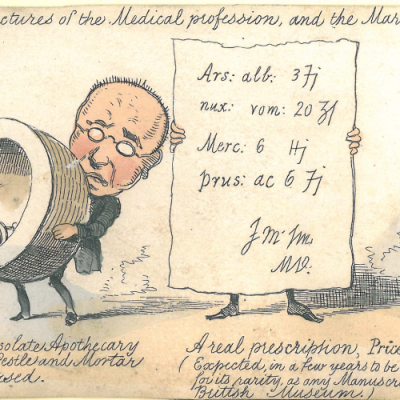 ctures of the Medical profession, and the Mar
Ars: alb: 3 fj
nux: vom: 20
Merc: 6 Hj
prus: ac 6 fj
M.D.
solate Apothecary
Pestle and Mortar
sed.
A real prescription, Price
(Expected, in a few years to be
for its rarity, as any Manuscri
British Museum.)